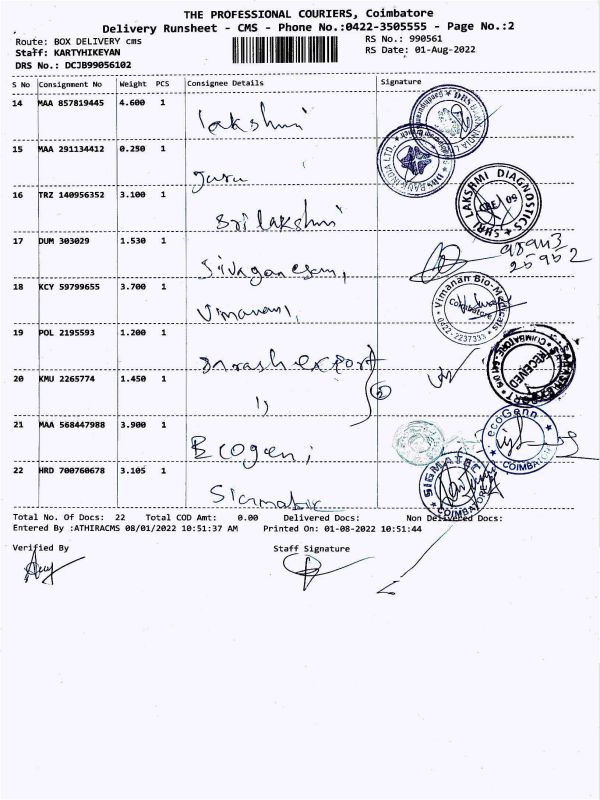 THE PROFESSIONAL COURIERS, Coimbatore
Delivery Runsheet - CMS - Phone No.:0422-3505555 - Page No.:2
Route: BOX DELIVERY cms
RS No.: 990561
Staff: KARTYHIKEYAN
RS Date: 01-Aug-2022
DRS No.: DCJB99056102
S No Consignment No Weight PCS Consignee Details Signature
14 MAA 857819445 4.600 1 lakshmi
15 MAA 291134412 0.250 1
16 TRZ 140956352 3.100 1 Sri lakshmi
SHRI LAKSHMI DIAGNOSTICS
17 DUM 303029 1.530 1 Sivaganesan,
18 KCY 59799655 3.700 1
Vimanan Bio-Medicals
Coimbatore
0422-2237333
19 POL 2195593 1.200 1 export
RECEIVED
20 KMU 2265774 1.450 1 ,,
21 MAA 568447988 3.900 1 Ecogen,
ecoGenn
COIMBATORE
22 HRD 700760678 3.105 1
SIGMATEC
COIMBATORE
Total No. Of Docs: 22 Total COD Amt: 0.00 Delivered Docs: Non Delivered Docs:
Entered By :ATHIRACMS 08/01/2022 10:51:37 AM Printed On: 01-08-2022 10:51:44
Verified By Staff Signature